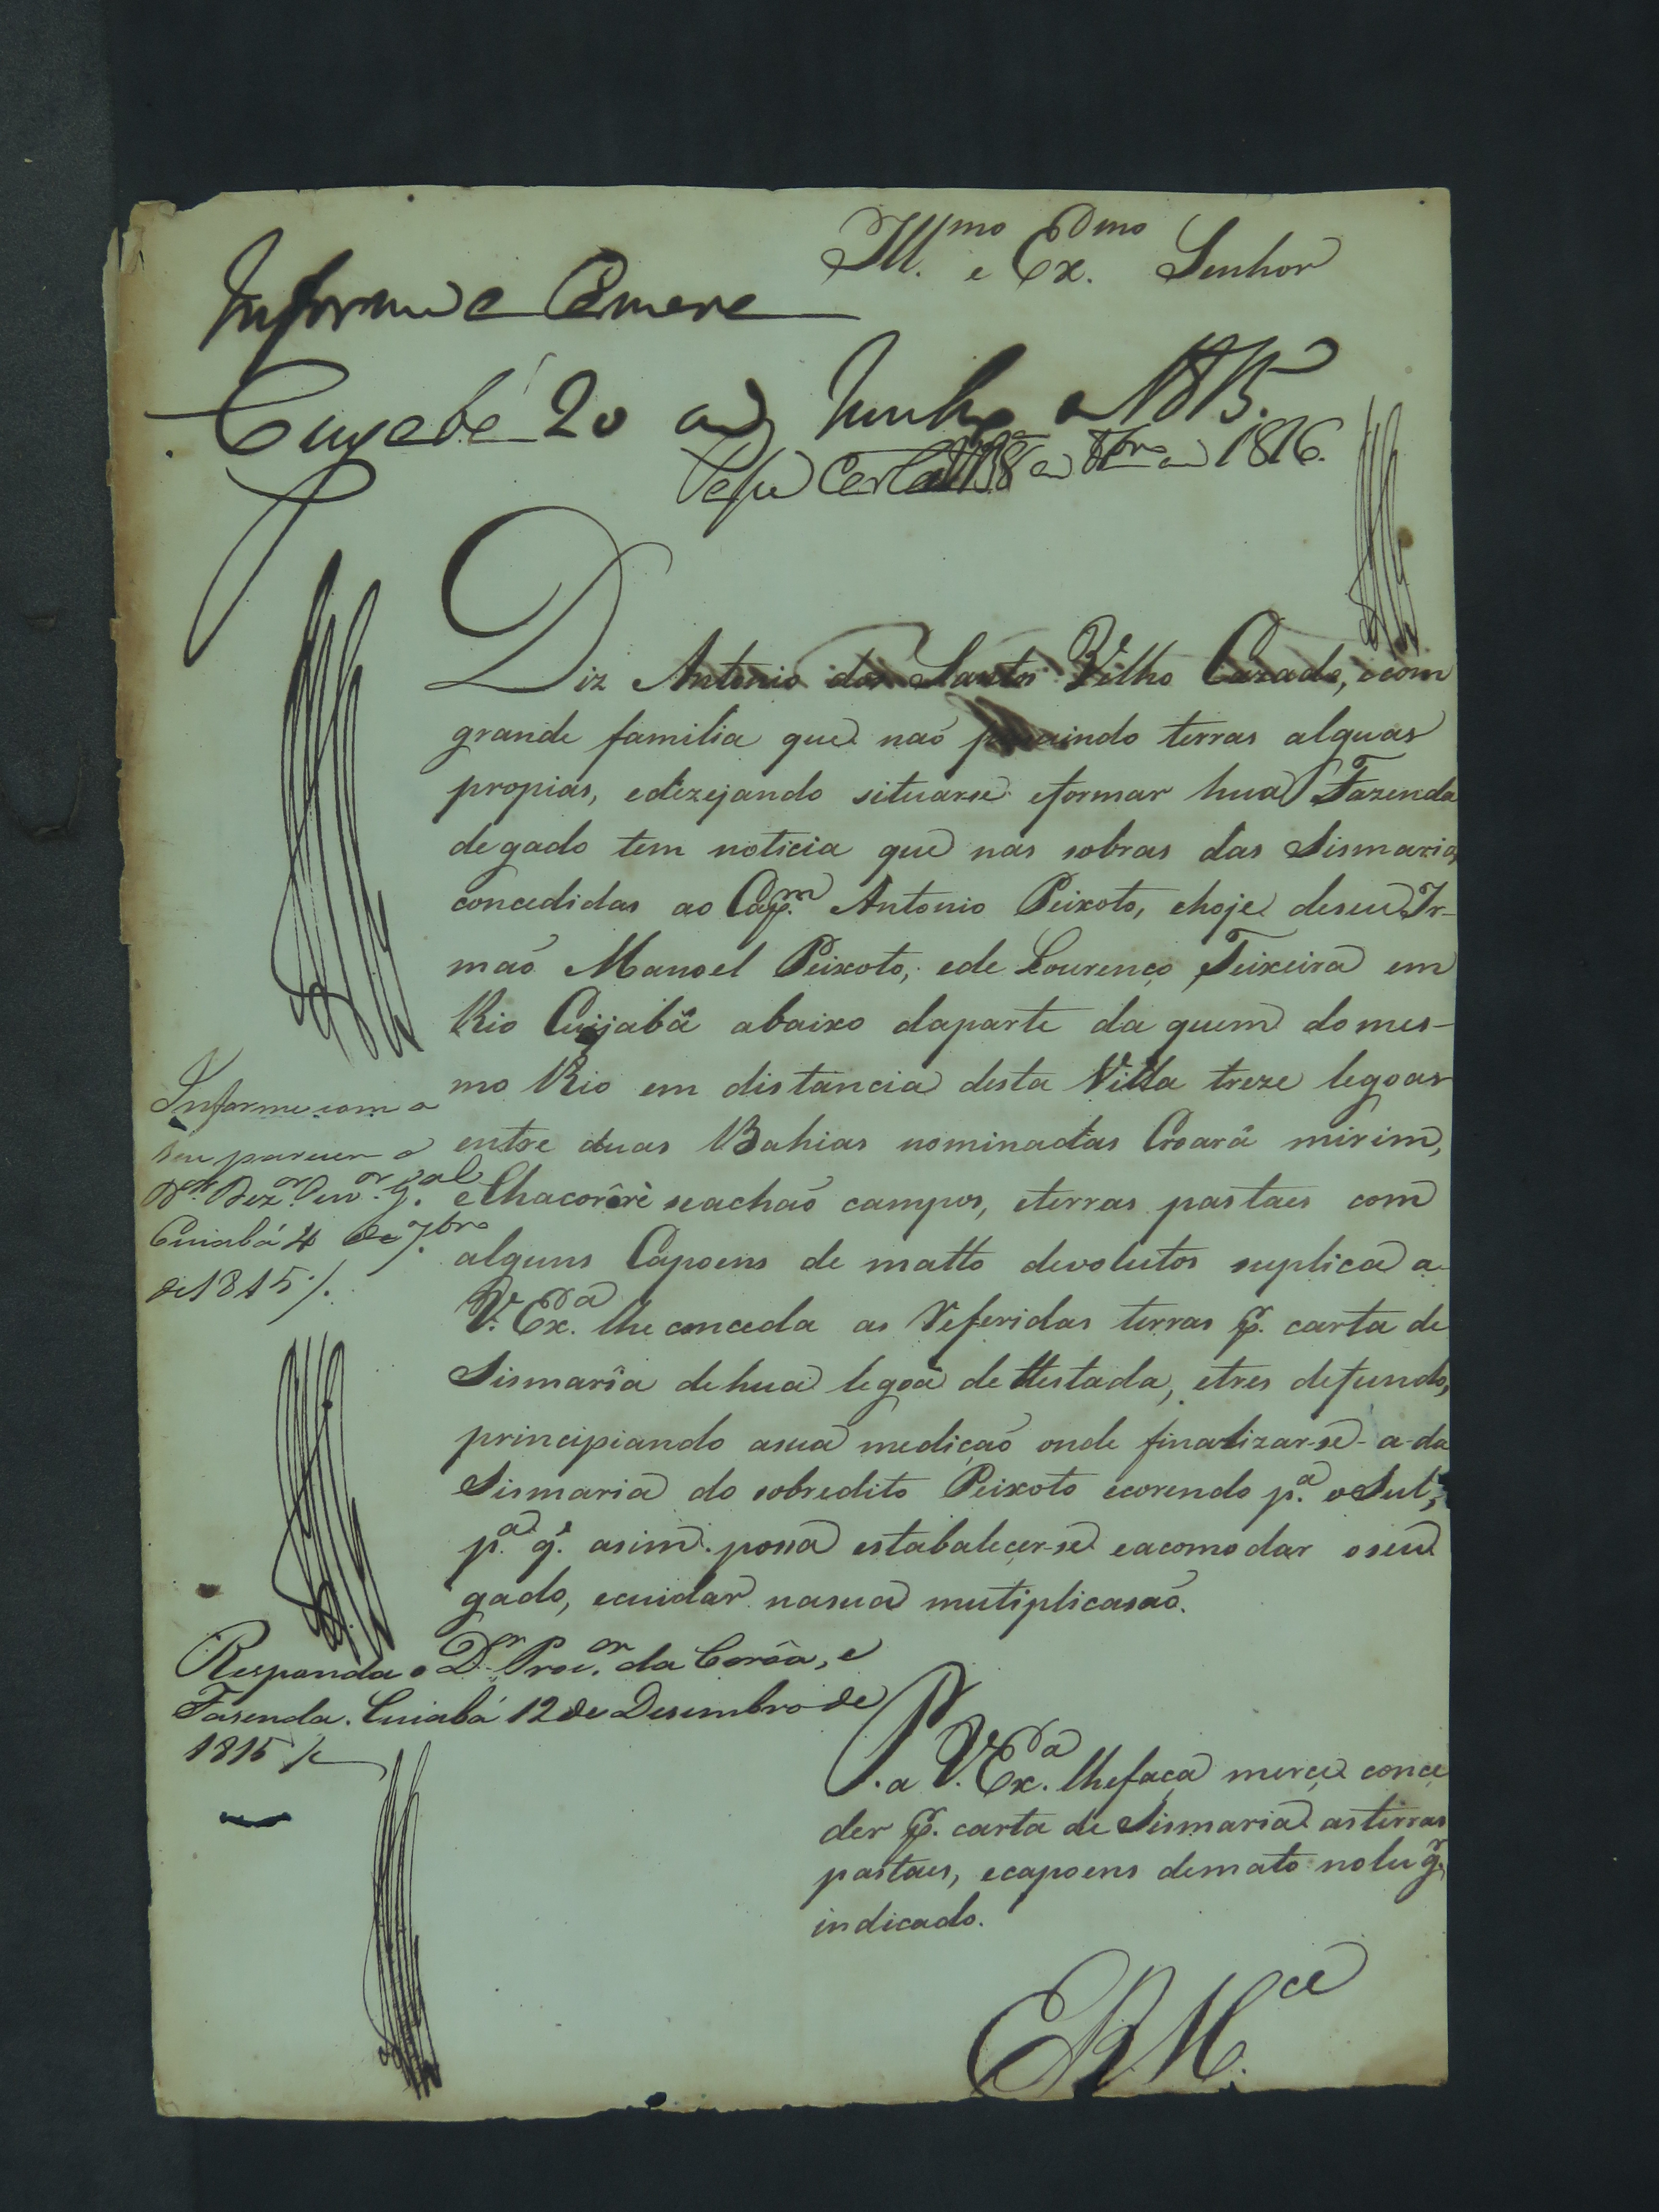 Ill.mo e Ex.mo Senhor
Informe a Camara
Cuyabá 20 de Junho de 1815.
Passe Carta 18 de 8bro de 1816.
Diz Antonio dos Santos Velho Cazado, e com
grande familia que naó pessuindo terras alguas
propias, e dezejando situarse e formar hua Fazenda
de gado tem noticia que nas sobras das Sismarias
concedidas ao Cap.m Antonio Peixoto, e hoje de seu Ir-
maó Manoel Peixoto, e de Lourenço Teixeira em
Rio Cuijabâ abaixo da parte da quem do mes-
mo Rio em distancia desta Villa treze legoas
entre duas Bahias nominadas Croarâ mirim,
e Chacorôrè se achaó campos, e terras pastaes com
alguns Capoens de matto devolutos suplica a
V. Ex.a lhe conceda as Referidas terras p.r carta de
Sismarîa de hua legoa de ttestada, e tres de fundo,
principiando a sua mediçaó onde finalizar-se-a-da
Sismaria do sobredito Peixoto e corendo p.a o Sul,
p.a q.e asim possa estabalecer-se e acomodar o seu
gado, e cuidar na sua mutiplicasaó.
Informe com o
seu parecer o
D.or Dez.or Ouv.or G.al
Cuiabá 4 de 7.bro
de 1815 /.
Responda o D.or Proc.or da Corôa, e
Fasenda. Cuiabá 12 de Desembro de
1815 /.
P. a V. Ex.a lhe faça merçe conce
der p.r carta de Sismaria as terras
pastaes, e capoens de mato no lug.r
indicado.
E R M.ce